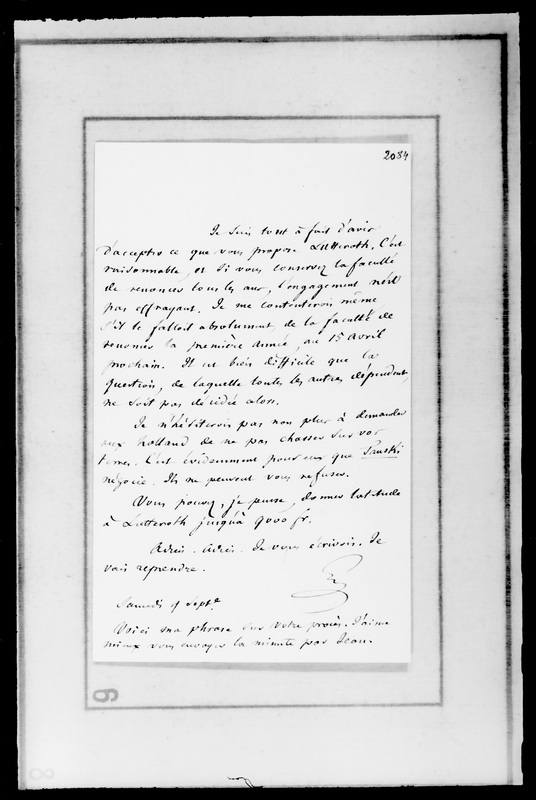 2084
Je suis tout à fait d'avis
d'accepter ce que vous propose Lutteroth. C'est
raisonnable, et si vous conservez la faculté
de renoncer tous les ans, l'engagement n'est
pas effrayant. Je me contenterois même
s'il le falloit absolument, de la faculté de
renoncer la première année, au 15 avril
prochain. Il est bien difficile que la
question, de laquelle toutes les autres dépendent
ne soit pas décidée alors.
Je n'hésiterois pas non plus à demander
aux Holland de ne pas chasser sur vos
terres. C'est évidemment pour eux que
négocie. Ils ne peuvent vous refuser.
Vous pouvez, je pense, donner latitude
à Lutteroth jusqu'à 9000 fr.
Adieu. Adieu. Je vous écrivois. Je
vais reprendre.
Samedi 9 Septe
Voici ma phrase sur votre procès. J'aime
mieux vous envoyer la minute par Jean.
6
8